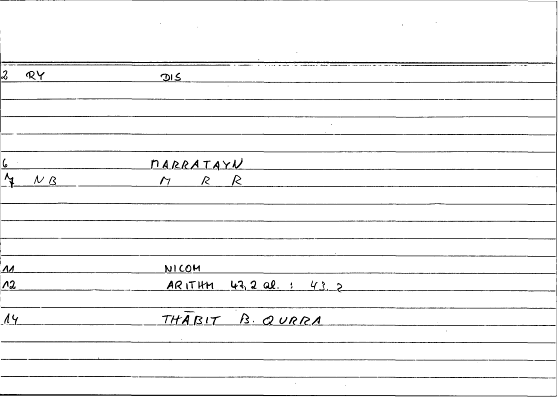 2 RY DIS
6 MARRATAYN
7 NB M R R
11 NICOM
12 ARITHM 47,2 al. : 43. 2
14 THĀBIT B. QURRA